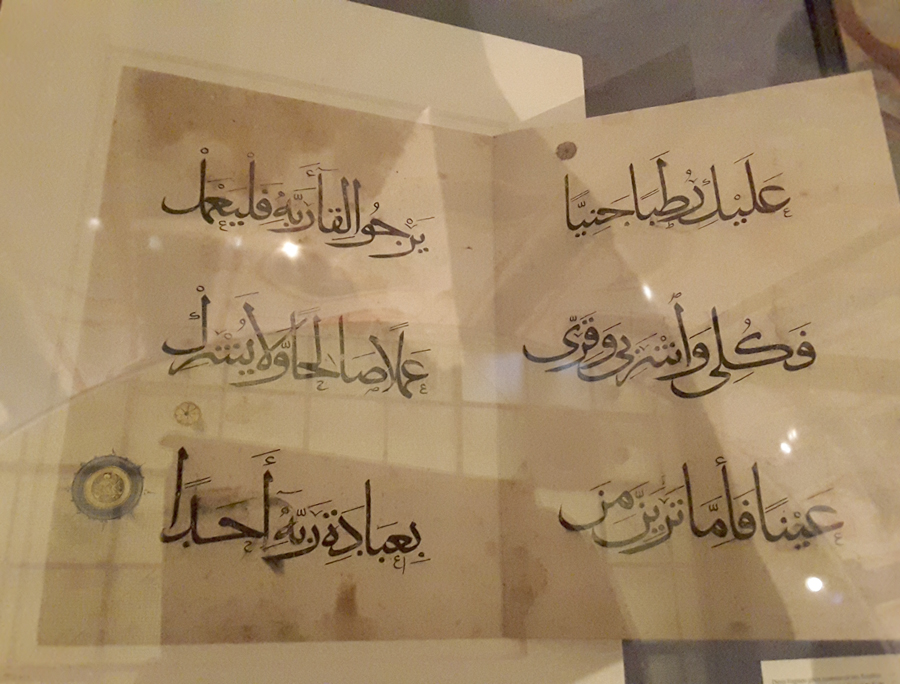 عَلَيْكِ رُطَبًا جَنِيًّا
فَكُلِى وَاشْرَبِى وَقَرِّى
عَيْنًا فَإِمَّا تَرَيِنَّ مِنَ
يَرْجُوا لِقَاءَ رَبِّهِ فَلْيَعْمَلْ
عَمَلًا صَالِحًا وَلَا يُشْرِكْ
بِعِبَادَةِ رَبِّهِ أَحَدًا